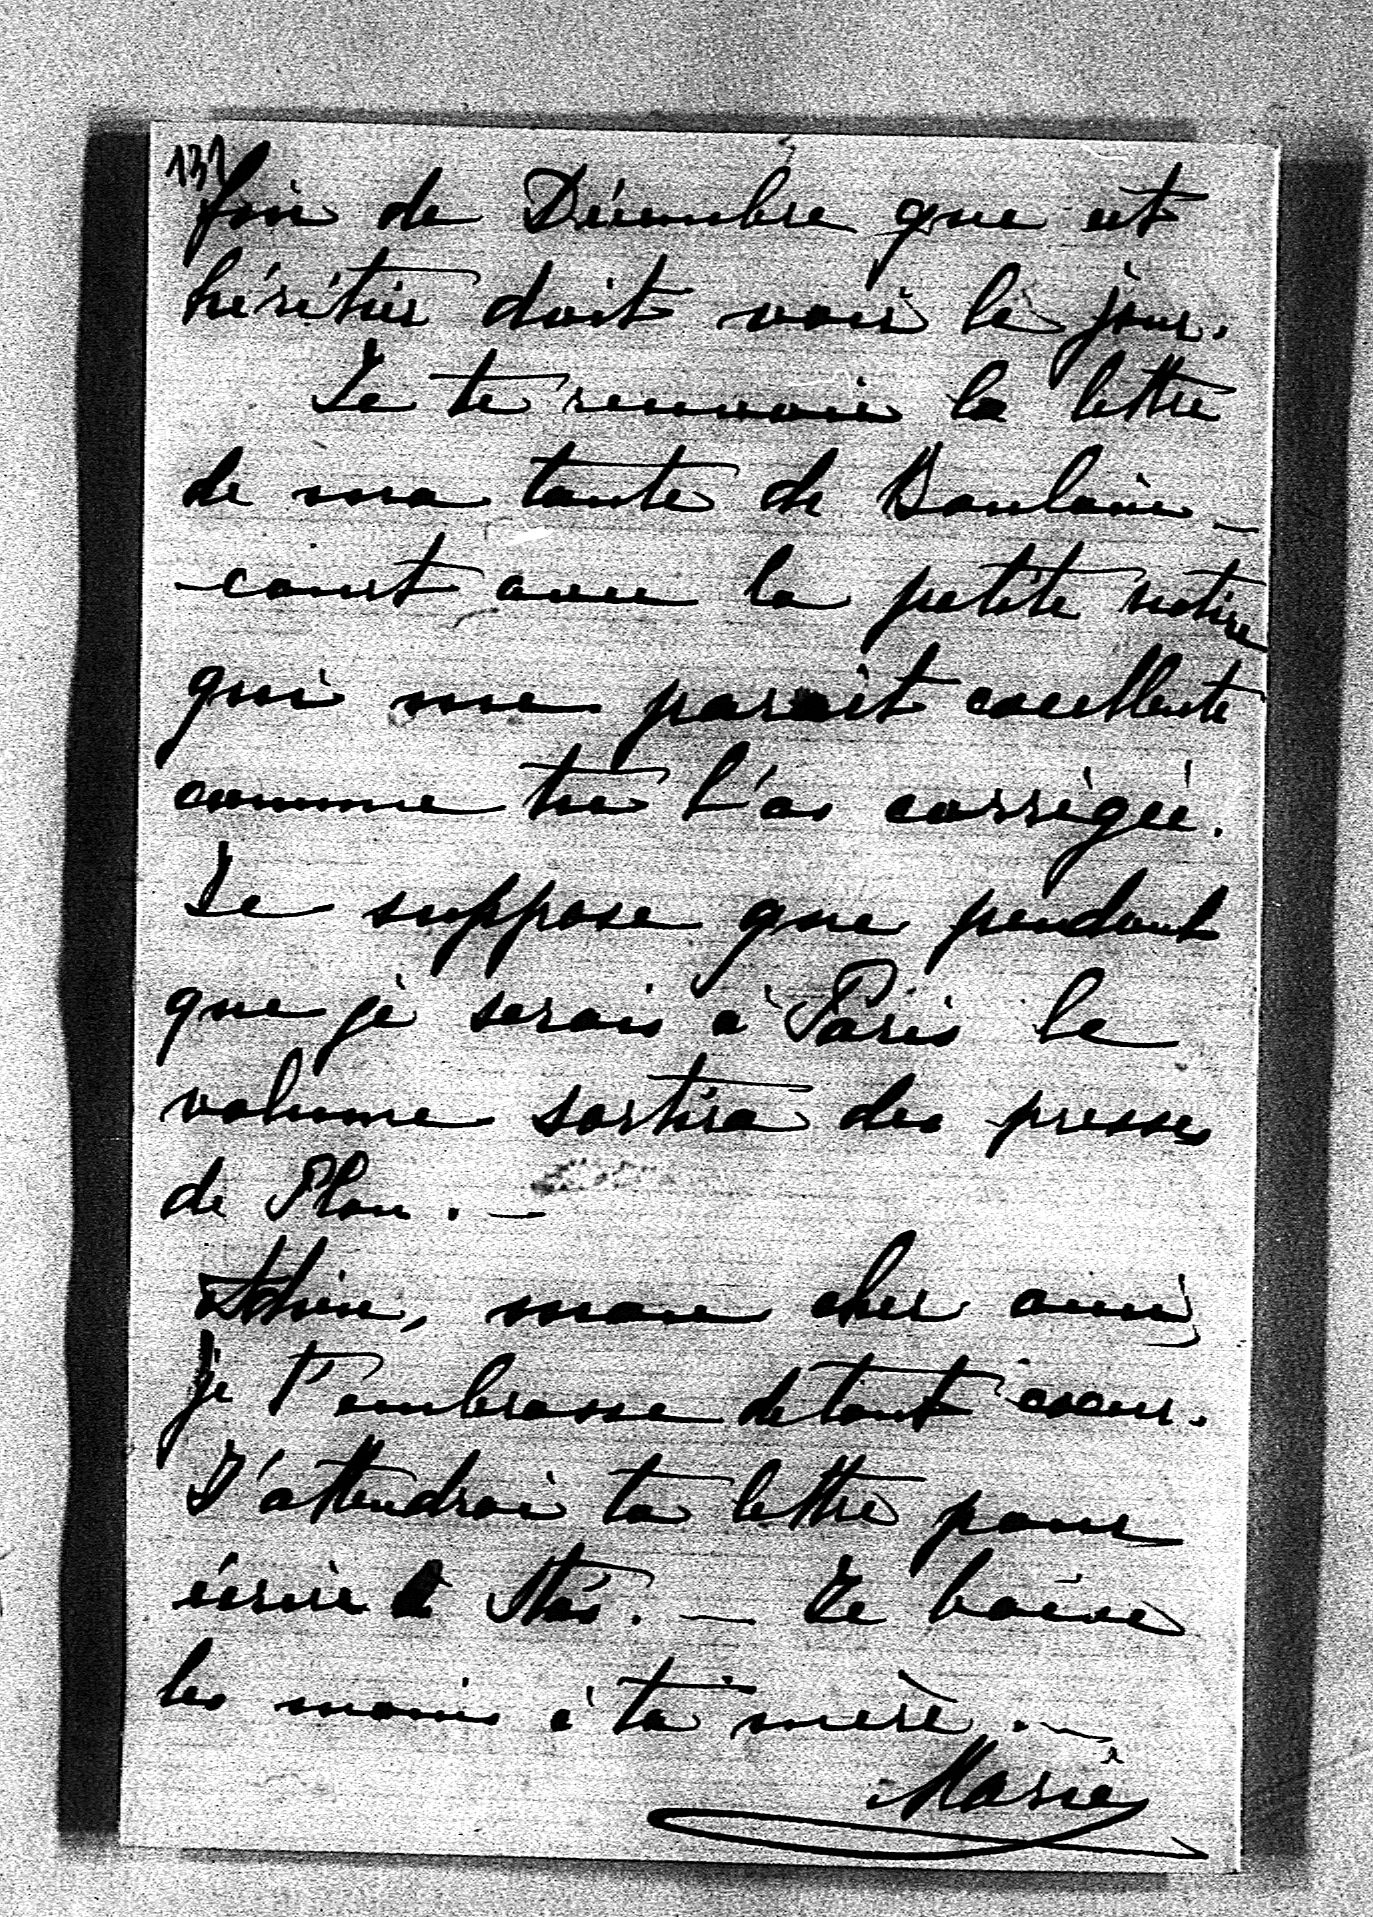 131
fin de Décembre que cet
héritier doit voir le jour.
Je te renvoie la lettre
de ma tante de Boulain-
-court avec la petite notice
qui me parait excellente
comme tu l'as corrigée.
Je suppose que pendant
que je serais à Paris le
volume sortira des presses
de Plon. —
Adieu, mon cher ami,
je t'embrasse de tout coeur.
J'attendrai ta lettre pour
écrire à Stas. — Je baise
les mains à ta mère. —
Marie